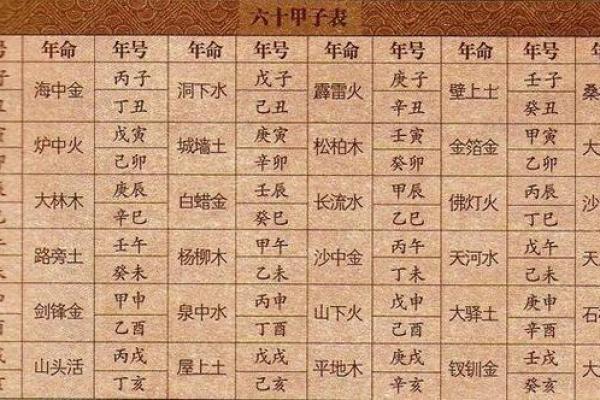 六十甲子表
号 年命 年号 年命 年号 年命 年号 年命 年号
丙子 戊子 庚子 壬子
海中金 洞下水 霹雷火 壁上土 桑
丁丑 己丑 辛丑 癸丑
戊寅 庚寅 壬寅 甲寅
炉中火 城墙土 松柏木 金箔金 大
己卯 辛卯 癸卯 乙卯
庚辰 壬辰 甲辰 丙辰
大林木 白蜡金 长流水 佛灯火 沙
辛巳 癸巳 乙巳 丁巳
壬午 甲午 丙午 戊午
路旁土 杨柳木 沙中金 天河水 天
癸未 乙未 丁未 己未
甲申 丙申 戊申 庚申
剑锋金 泉中水 山下火 大驿土 石
乙酉 丁酉 己酉 辛酉
丙戌 戊戌 庚戌 壬戌
山头活 屋上土 平地木 钗钏金 大
丁亥 己亥 辛亥 癸亥